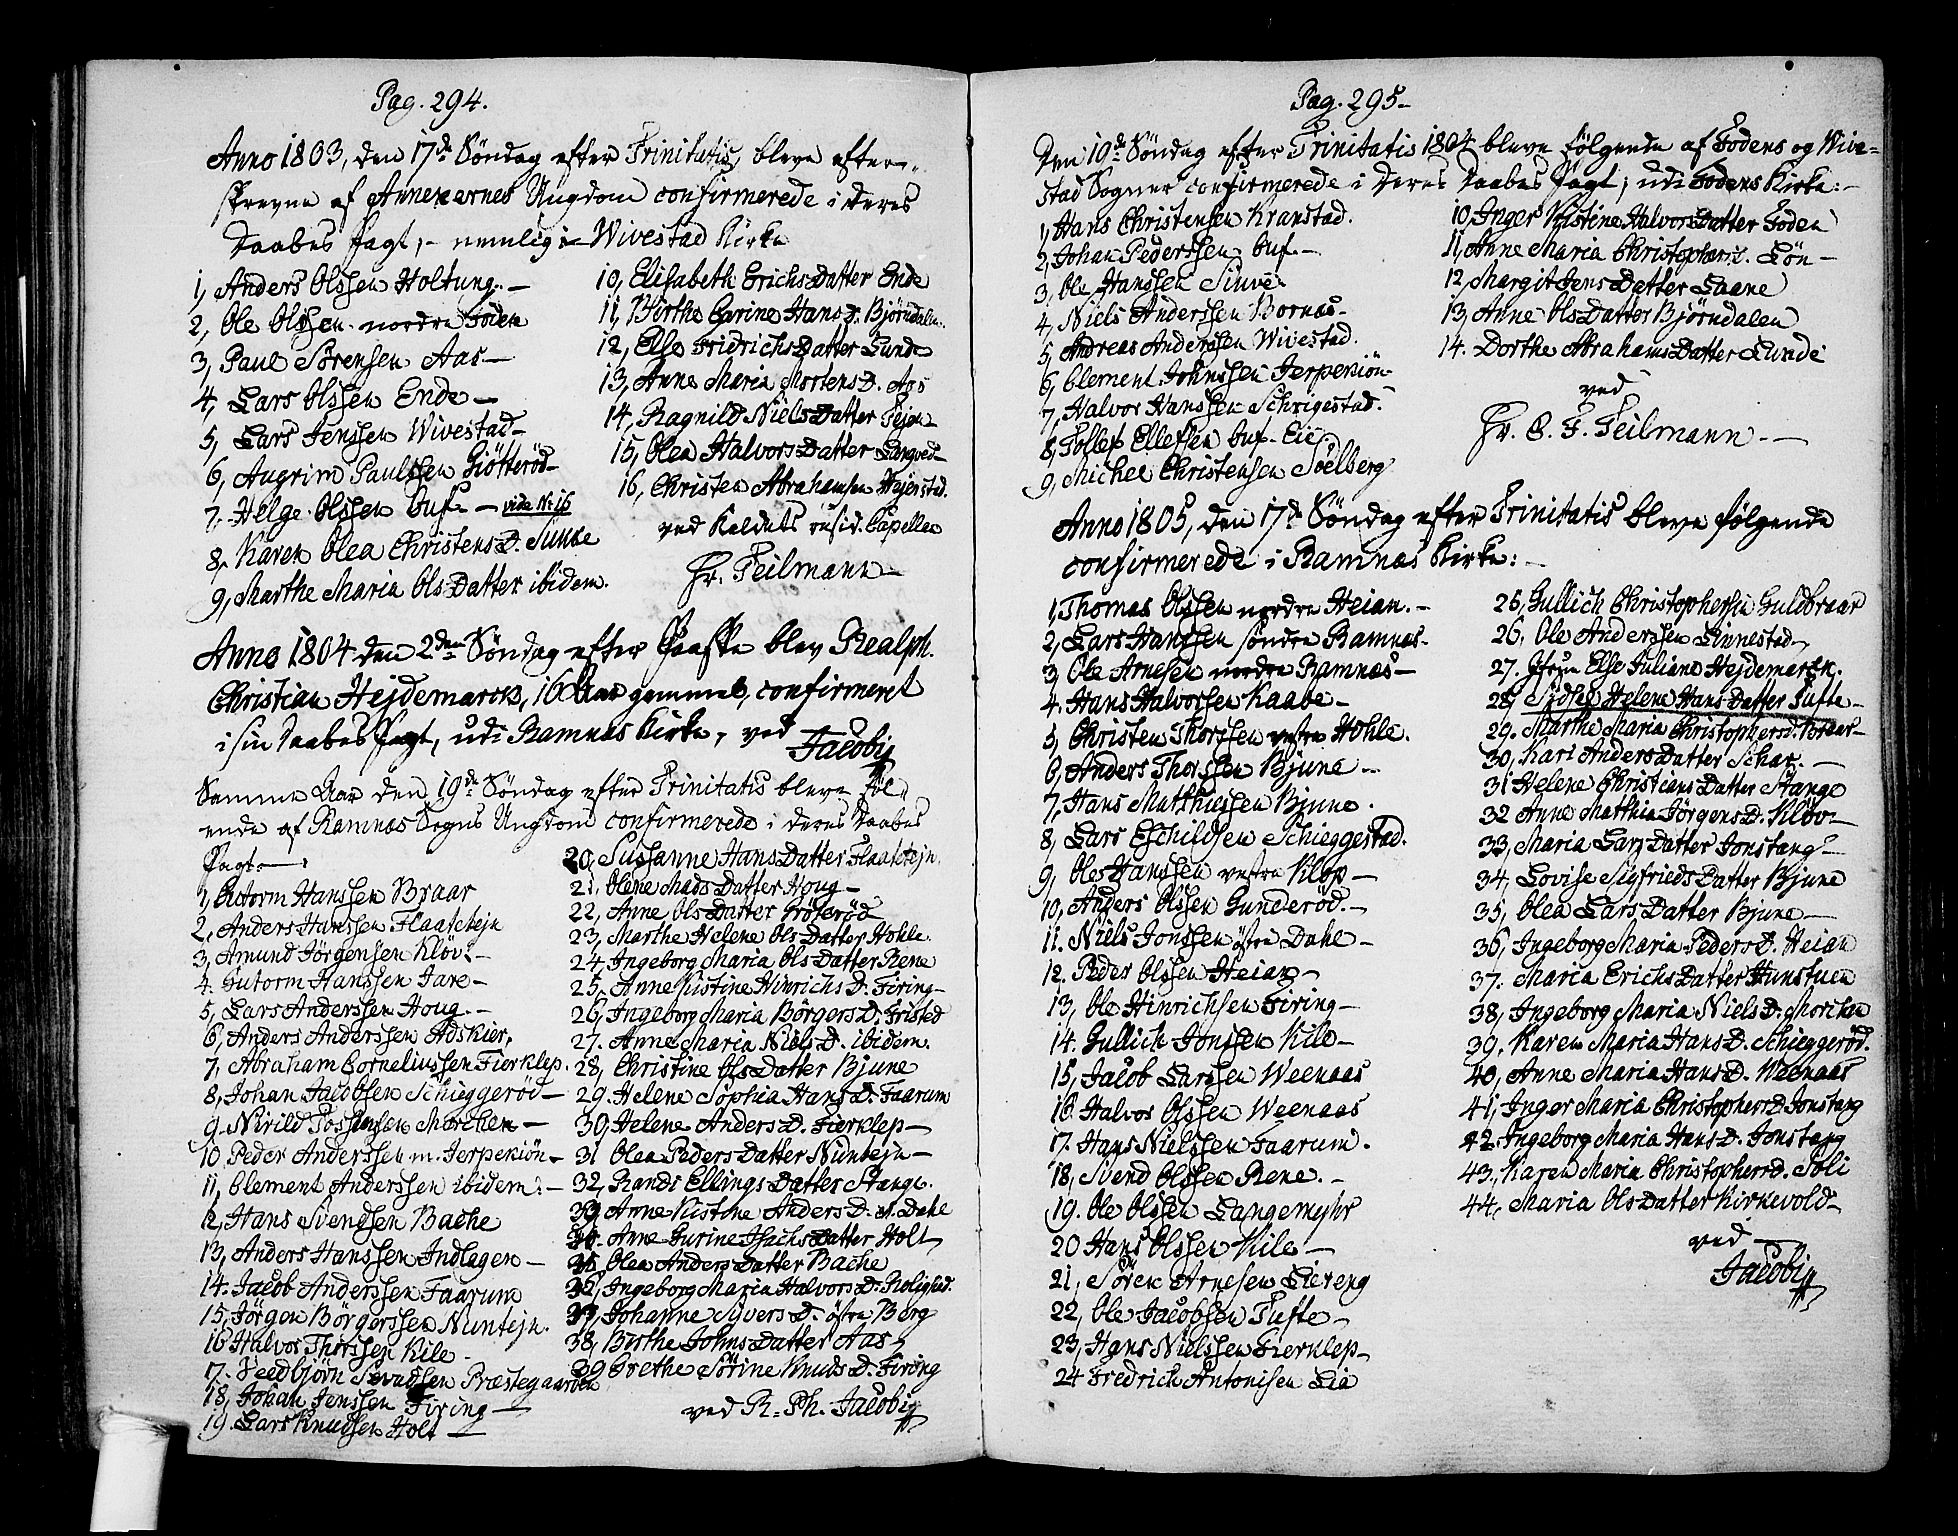 Pag. 294.
Anno 1803, den 17de Söndag efter Trinitatis, bleve efter-
skrevne af Annexernes Ungdom confirmerede i deres
Daabes Pagt, - nemlig i Wivestad Kirke
1, Anders Olssen Holtung. -
2, Ole Olssen nordre Foden
3, Paul Sörensen Aas -
4, Lars Olssen Ende -
5, Lars Jenssen Wivestad -
6, Augrim Paulssen Giötteröd -
7. Helge Olssen Buf - vide No 16
8, Karen Olea Christens D. Sunve
9, Marthe Maria Ols Datter ibidem.
10, Elisabeth Erichs Datter Ende
11, Birthe Gorine Hans D. Björndalen.
12, Else Fridrichs Datter Lunde
13, Anne Maria Mortens D. Aas
14, Ragnild Niels Datter
15, Olea Halvors Datter Langved -
16, Christen Abrahamsen Hejerstad.
ved Kaldets resid. Capellan
Hr. Teilmann -
Anno 1804 den 2den Söndag efter Paaske blev Realph.
Christian Hejdemarck, 16 Aar gammel, confirmeret
i sin Daabes Pagt, udi Ramnæs Kirke, ved
Jacobi
Samme Aar den 19de Söndag efter Trinitatis bleve föl-
ende af Ramnæs Sogns Ungdom confirmerede i deres Daabes
Pagt -
1, Gutorm Hanssen Braar
2, Anders Hanssen Flaatetejn
3, Amund Jörgensen Klöv. -
4. Gutorm Hanssen Fare -
5, Lars Anderssen Houg. -
6, Anders Anderssen Adskier,
7, Abraham Corneliussen Fierklep.
8, Johan Jacobsen Schieggeröd -
9. Nirild Morchen -
10 Peder Anderssen m. Jerpekiön -
11, Clement Anderssen ibidem. -
12, Hans Svendsen Bache
13, Anders Hanssen Indlagen -
14. Jacob Anderssen Faarum
15, Jörgen Börgerssen Nuntejn.
16 Halvor Thorssen Kile -
17. Præstegaarden
18, Johan Jenssen Firing -
19. Lars Knudsen Holt -
20, Sussanne Hans Datter Flaatetejn.
21. Olene Mads Datter Houg -
22, Anne Ols Datter Gröteröd
23, Marthe Helene Ols Datter Hohle.
24, Ingeborg Maria Ols Datter Rene
25. Anne Kistine Hinrichs D. Firing -
26, Ingeborg Maria Börgers D. Fristed
27. Anne Maria Niels D. ibidem.
28, Christine Ols Datter Bjune
29. Helene Sophia Hans D. Faarum
30, Helene Anders D. Fierklep -
31 Olea Peders Datter Nuntejn -
32, Randi Ellings Datter Stange.
33, Anne Kistine Anders D. v. Dahe
34. Anne Gurine Isachs Datter Holt
35 Olea Anders Datter Bache
36, Ingeborg Maria Halvors D. Rolighed.
37, Johanne Syvers D. östre Berg
38, Birthe Johns Datter Aas,
39 Grethe Sörine Knuds D. Firing
ved R. Ph. Jacobi
Pag. 295 -
Den 19de Söndag efter Trinitatis 1804 bleve fölgende af Fodens og Wive-
stad Sogner confirmerede i deres Daabes Pagt, udi Fodens Kirke: -
1, Hans Christensen Kranstad.
2, Johan Pederssen Buf. -
3, Ole Hanssen Sunve
4, Niels Anderssen Bornæs -
5, Andreas Anderssen Wivestad.
6, Clement Johnssen Jerpekiön -
7, Halvor Hanssen Schrigestad.
8, Tollef Ellefsen Buf - Eie.
9, Michel Christensen Söelberg
10, Inger Kistine Halvors Datter Foden
11, Anne Maria Christophers D. Lön -
12, Margit Jens Datter Laane
13, Anne Ols Datter Björndalen
14. Dorthe Abrahams Datter Lunde
ved
Hr. C. F. Teilmann. -
Anno 1805, den 17de Söndag efter Trinitatis bleve fölgende
confirmerede i Ramnæs Kirke: -
1, Thomas Olssen nordre Heian. -
2, Lars Hanssen söndre Ramnæs -
3, Ole Arnesen nordre Ramnæs -
4. Hans Halvorssen Kaabe -
5, Christen Thorssen vestre Hohle.
6, Anders Thorssen Bjune -
7, Hans Matthiessen Bjune.
8, Lars Eschildsen Schieggestad.
9, Ole Hanssen vestre Klöp -
10, Anders Olssen Gunderöd. -
11. Niels Jonssen östre Dahe -
12. Peder Olssen Heian -
13, Ole Hinrichsen Firing -
14. Gullich Jonssen Kile -
15, Jacob Larssen Weenaas
16. Halvor Olssen Weenaas
17. Hans Nielssen Faarum.
18, Svend Olssen Rene. -
19. Ole Olssen Langemyhr
20 Hans Olssen Kile -
21, Sören Arnesen Liereng
22, Ole Jacobsen Tufte -
23, Hans Nielssen Fierklep -
24 Fredrich Antonisen Lia
25, Gullich Christophersen Guldbraar
26. Ole Anderssen Linnestad -
27. Else Juliane Hejdemarck.
28, Sidsel Helene Hans Datter Tufte -
29. Marthe Maria Christophers D.
30, Kari Anders Datter Schar. -
31 Helene Christians Datter Stange
32 Anne Mathia Jörgens D. Klöv -
33, Maria Lars Datter Jonstang -
34, Lovise Sigfrieds Datter Bjune
35, Olea Lars Datter Bjune -
36, Ingeborg Maria Peders D. Heian
37. Maria Erichs Datter Hunstuen
38, Ingeborg Maria Niels D. Morchen
39, Karen Maria Hans D. Schieggeröd.
40, Anne Maria Hans D. Weenaas
41, Inger Maria Christophers D. Jonstang
42. Ingeborg Maria Hans D. Jonstang
43, Karen Maria Christophers D. Soli
44, Maria Ols Datter Kirkevold -
ved -
Jacobi